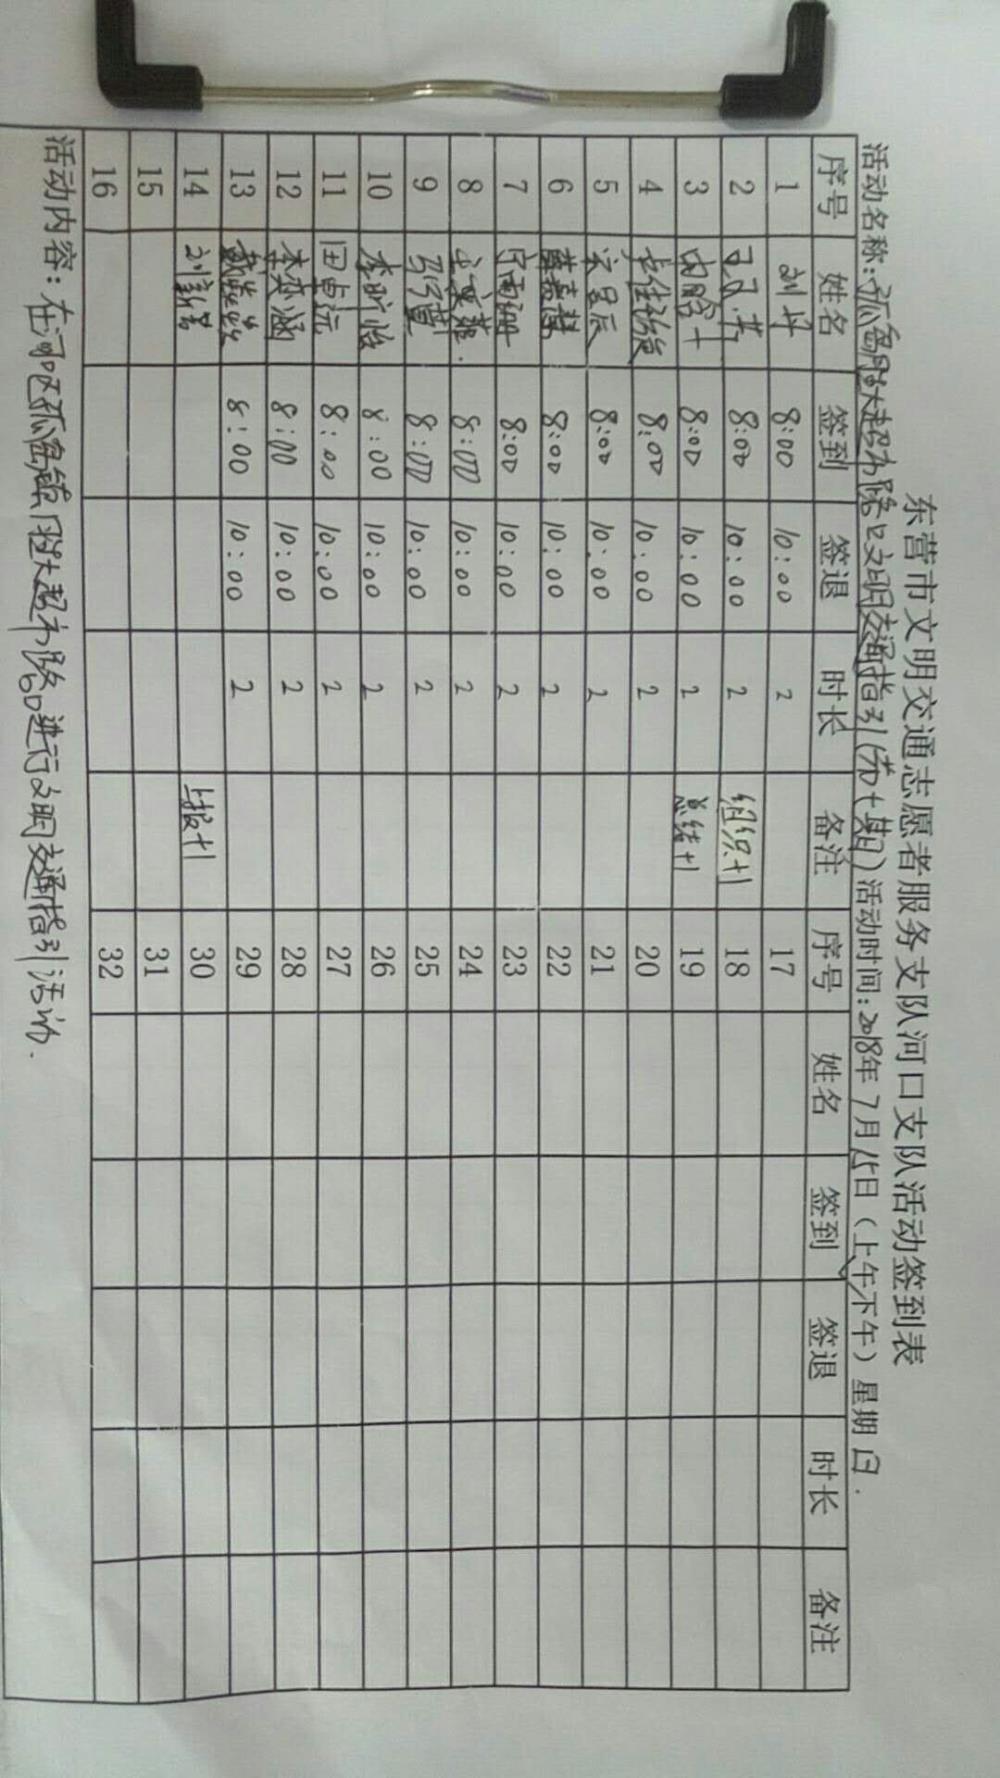 东营市文明交通志愿者服务支队河口支队活动签到表
活动名称:孤岛胜大超市路口文明交通指引(第十期)活动时间:2018年7月15日(上午下午)星期日.
序号 姓名 签到 签退 时长 备注 序号 姓名 签到 签退 时长 备注
1 8:00 10:00 2 17
2 8:00 10:00 2 组织+1 18
3 8:00 10:00 2 总结+1 19
4 8:00 10:00 2 20
5 8:00 10:00 2 21
6 8:00 10:00 2 22
7 宁雨珊 8:00 10:00 2 23
8 8:00 10:00 2 24
9 8:00 10:00 2 25
10 李昕怡 8:00 10:00 2 26
11 田卓沅 8:00 10:00 2 27
12 李奕涵 8:00 10:00 2 28
13 8:00 10:00 2 29
14 上报+1 30
15 31
16 32
活动内容:在河口区孤岛镇胜大超市路口进行文明交通指引活动.